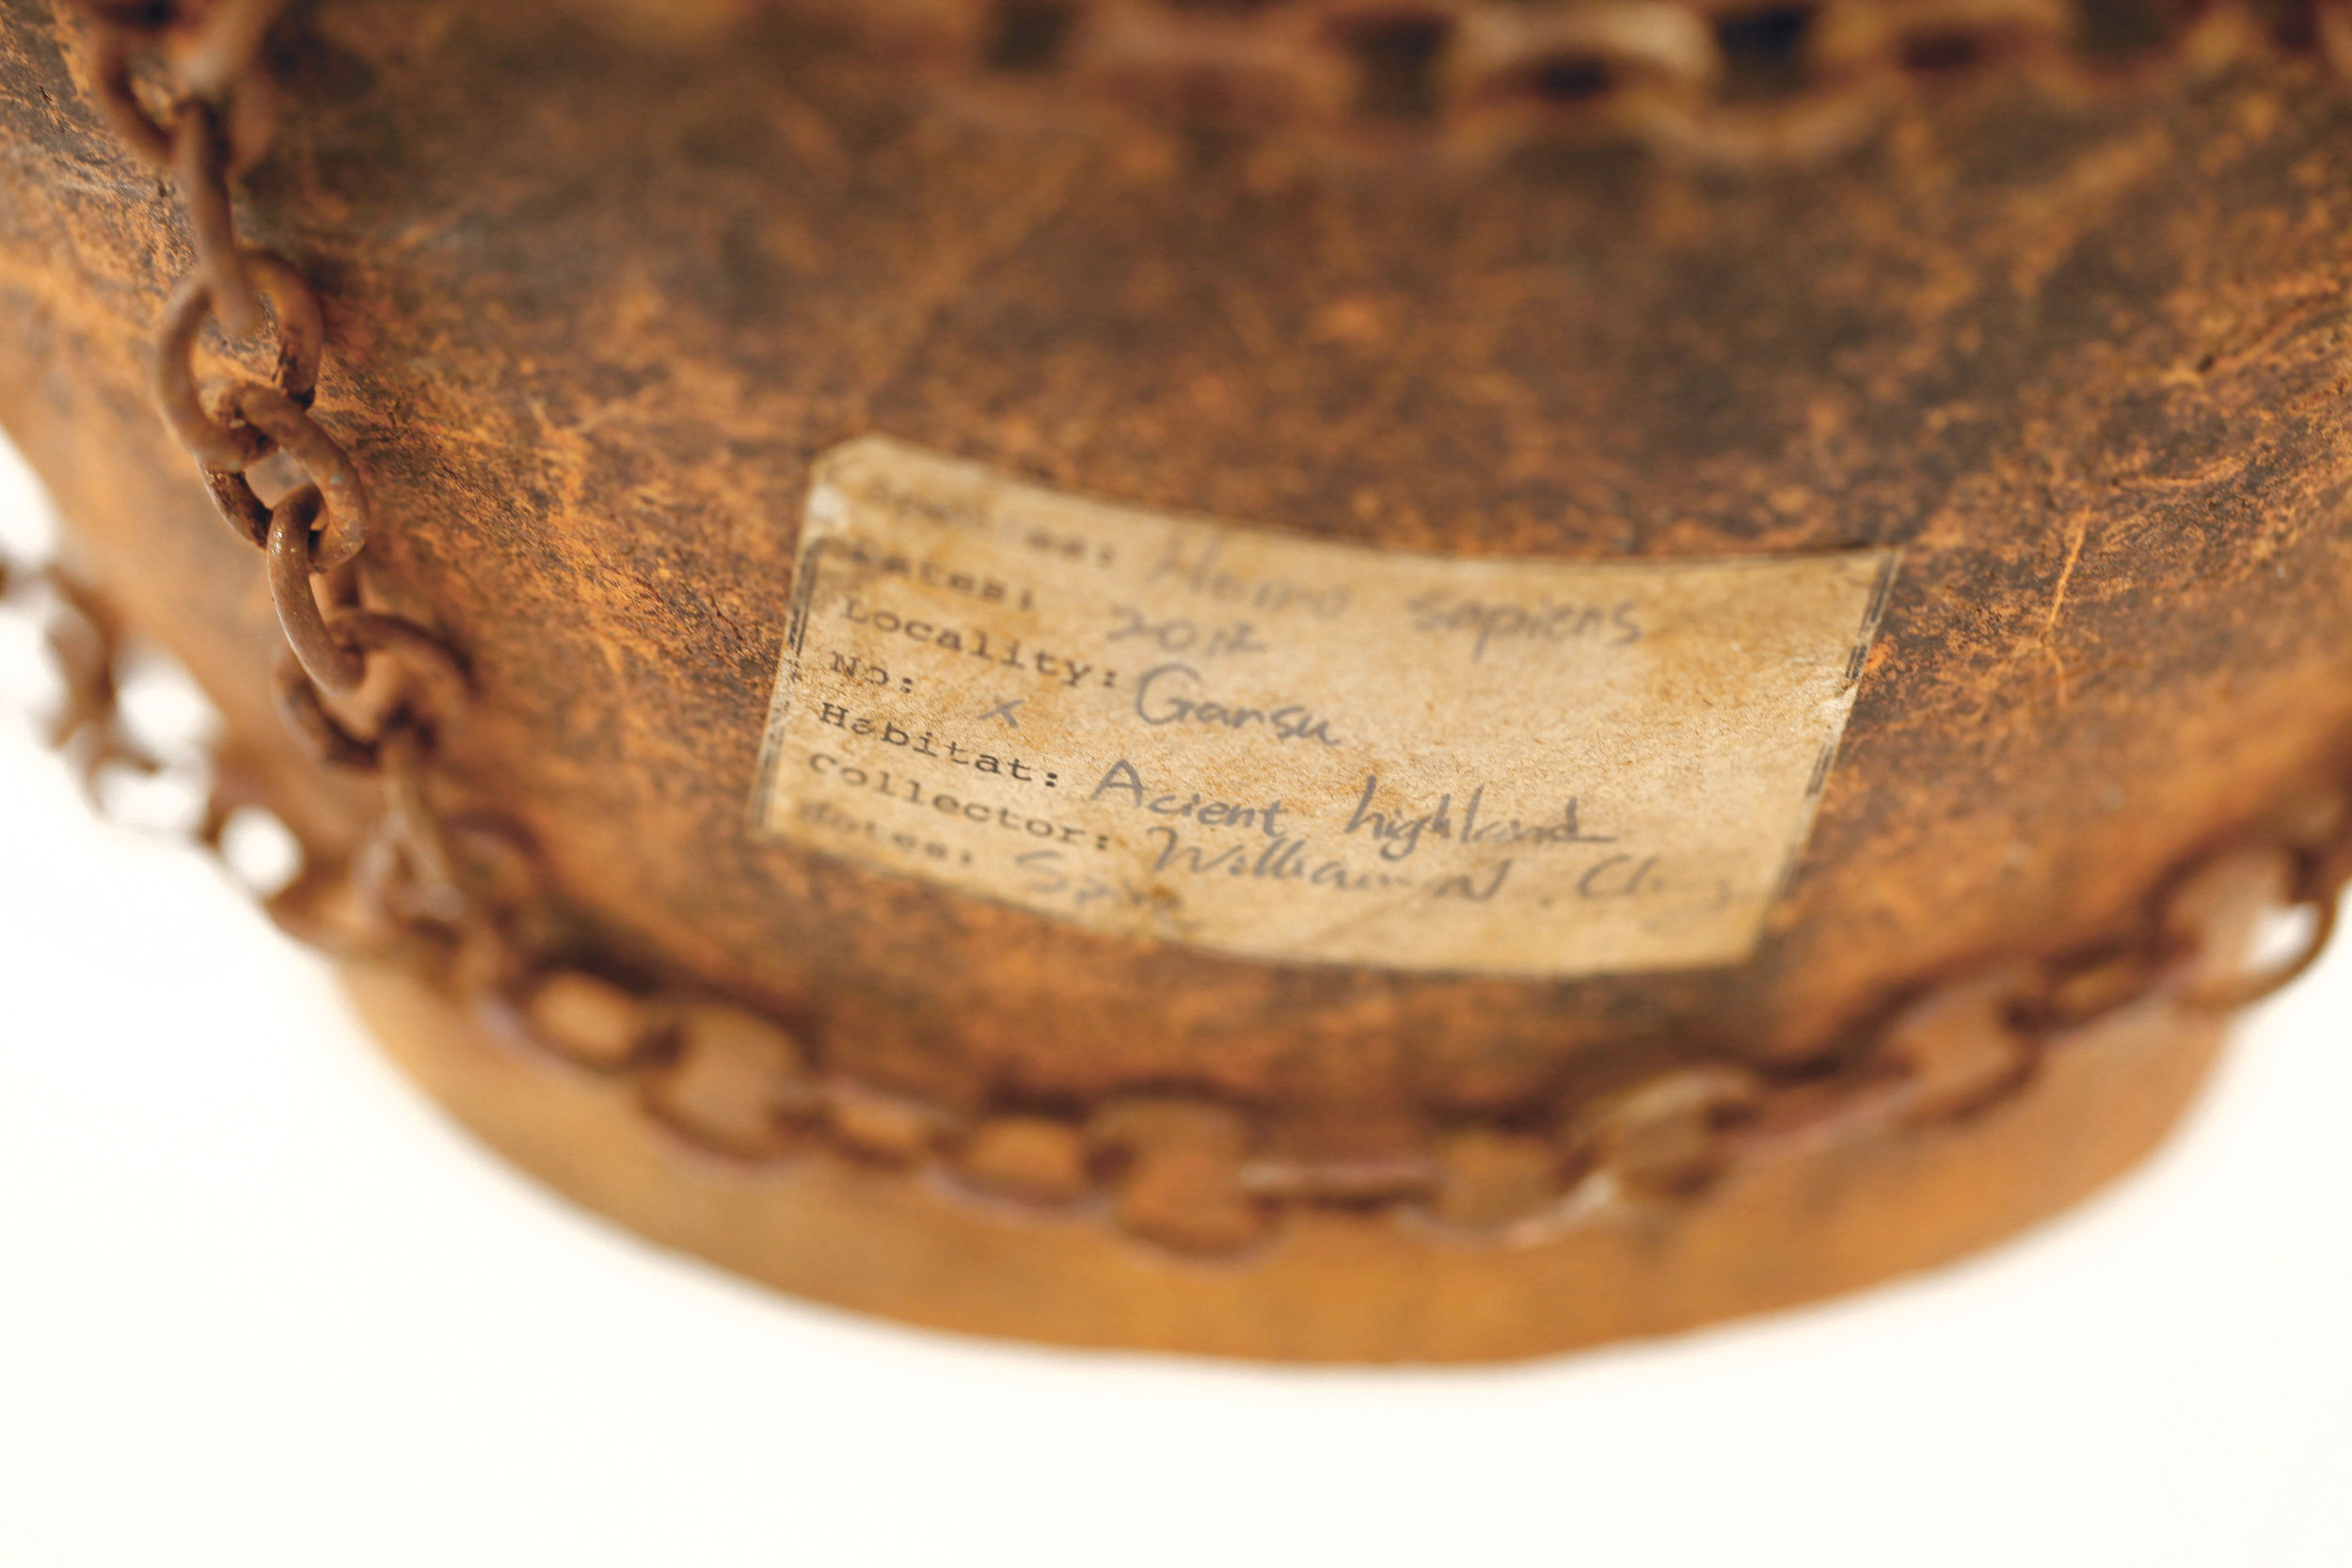 Species: Homo sapiens
Dates: 2012
Locality: Gansu
No: x
Habitat: Acient highland
Collector: William N.
Notes: